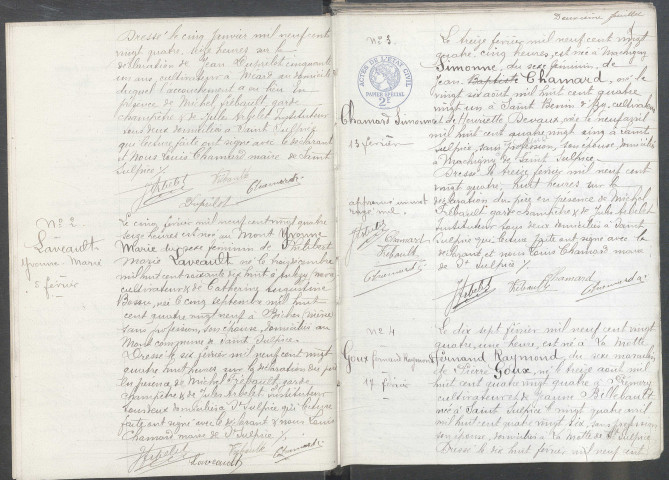 Dressé le cinq janvier mil neuf cent
vingt quatre, onze heures sur la
déclaration de Jean Dupilot cinquante
domicile
duquel l'accouchement a eu lieu en
présence de Michel Rebault, garde
champêtre & de Jules instituteur
tous deux domiciliés à Saint Sulpice
qui lecture faite ont signé avec le déclarant
et Nous Louis Chamard maire de Saint
Sulpice
Rebault Chamard
Dupilot
N° 2.
Laveault
Yvonne Marie
5 février
Le cinq février mil neuf cent vingt quatre
seize heures est née au Mont Yvonne
Marie du sexe féminin de
Marie Laveault né le
mil huit cent soixante dix huit à
cultivateur & de Catherine Augustine
née le cinq septembre mil huit
cent quatre vingt neuf à
sans profession, son épouse, domiciliés au
Mont commune de Saint Sulpice.
Dressé le six février mil neuf cent vingt
quatre huit heures sur la déclaration du père
en présence de Michel Rebault, garde
champêtre & de Jules instituteur
tous deux domiciliés à St Sulpice qui lecture
faite ont signé avec le déclarant & nous Louis
Chamard maire de St Sulpice
Rebault Chamard
Laveault
Deuxième feuillet
N° 3
ACTES DE L'ETAT CIVIL
PAPIER SPÉCIAL
2F
Chamard Simonne
13 février
approuvé un mot
rayé nul.
Chamard
Rebault
Chamard
Le treize février mil neuf cent vingt
quatre, cinq heures, est née à Machigny
Simonne, du sexe féminin, de
Jean Baptiste Chamard, né le
vingt six août mil huit cent quatre
vingt un à Saint Benin d'Azy, cultivateur
et de Henriette Devaux née le neuf avril
mil huit cent quatre vingt cinq à Saint
Sulpice, sans profession, son épouse, domiciliés
à Machigny de Saint Sulpice.
Dressé le treize février mil neuf cent
vingt quatre, huit heures sur la
déclaration du père en présence de Michel
Rebault garde champêtre & de Jules
instituteur tous deux domiciliés à Saint
Sulpice qui lecture faite ont signé avec le
déclarant et nous Louis Chamard maire
de St Sulpice
Chamard
Rebault Chamard
N° 4
Goux Fernand Raymond
17 février
Le dix sept février mil neuf cent vingt
quatre, une heure, est né à La Motte
Fernand Raymond, du sexe masculin
de Pierre Goux, né le treize août mil
huit cent quatre vingt quatre à Prémery
cultivateur et de Jeanne Bellebault
née à Saint Sulpice le vingt quatre avril
mil huit cent quatre vingt six, sans profession
son épouse, domiciliés à La Motte de St Sulpice
Dressé le dix huit février mil neuf cent